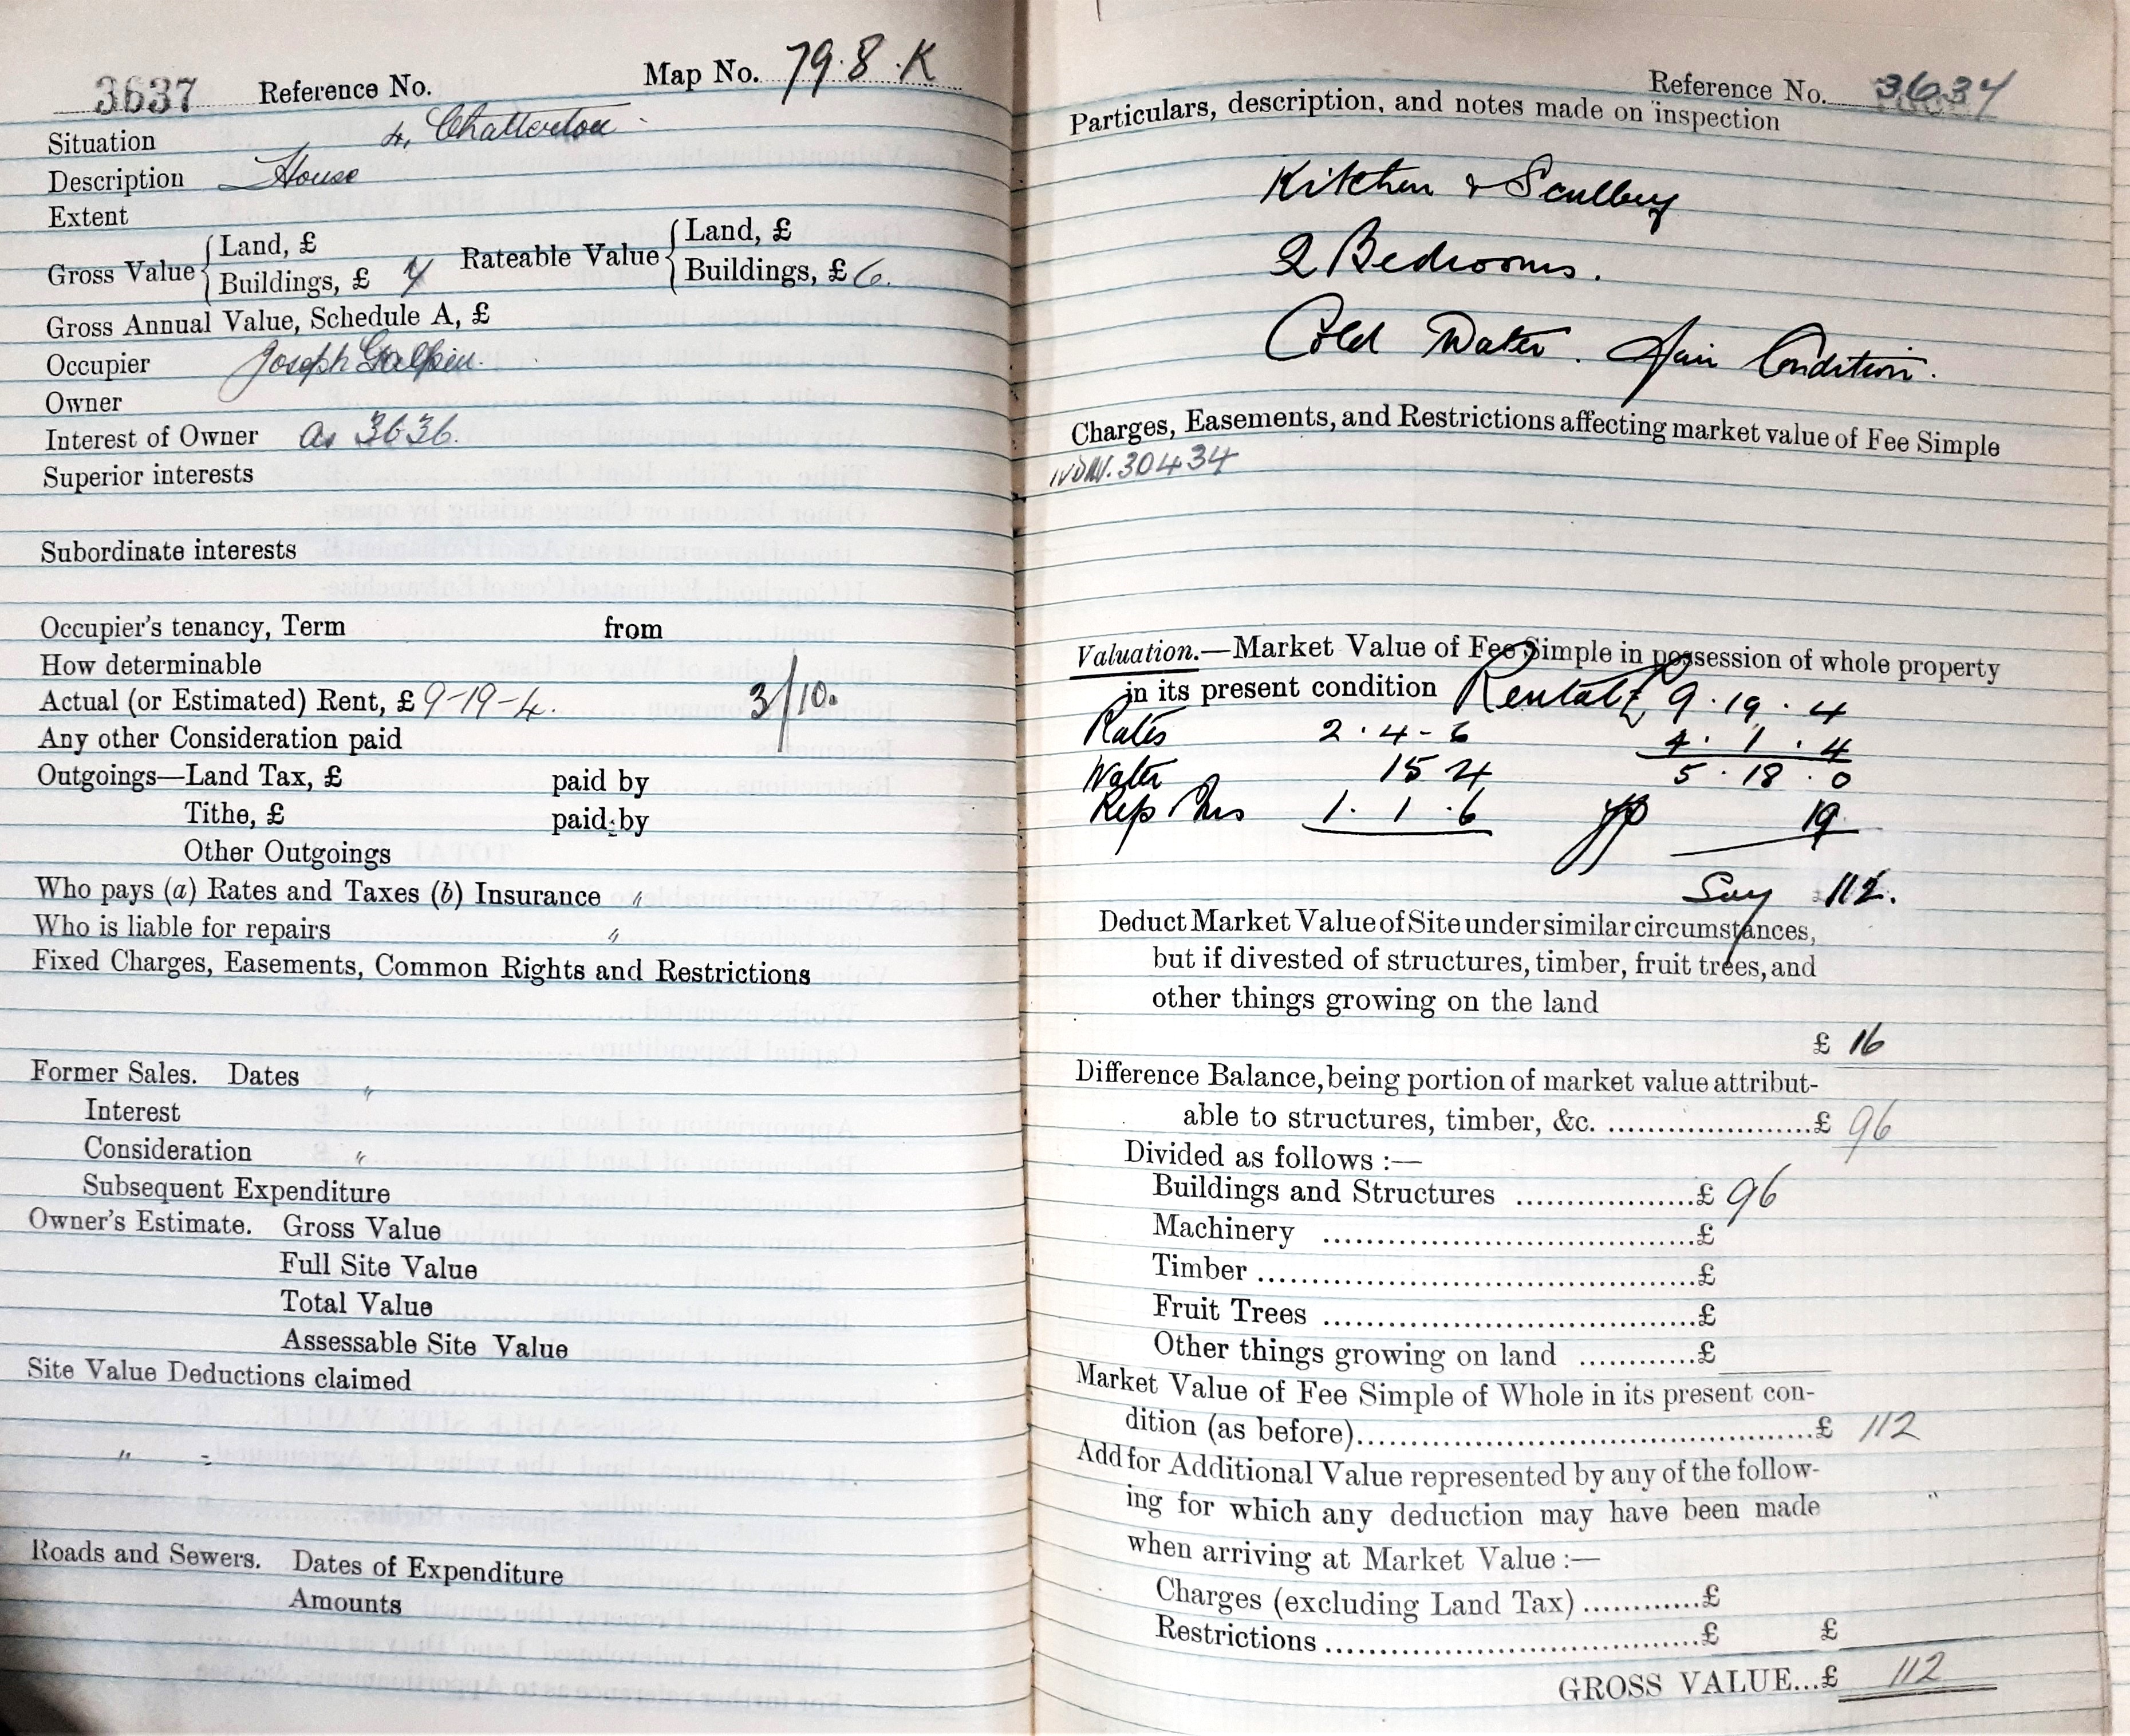 3637 Reference No. Map No. 79.8.K
Situation 4, Chatterton
Description House
Extent
Gross Value { Land, £ Rateable Value { Land, £
Buildings, £ 7 Buildings, £ 6.
Gross Annual Value, Schedule A, £
Occupier Joseph Galpin.
Owner
Interest of Owner As 3636.
Superior interests
Subordinate interests
Occupier's tenancy, Term from
How determinable
Actual (or Estimated) Rent, £ 9-19-4. 3/10.
Any other Consideration paid
Outgoings—Land Tax, £ paid by
Tithe, £ paid by
Other Outgoings
Who pays (a) Rates and Taxes (b) Insurance "
Who is liable for repairs "
Fixed Charges, Easements, Common Rights and Restrictions
Former Sales. Dates "
Interest
Consideration "
Subsequent Expenditure
Owner's Estimate. Gross Value
Full Site Value
Total Value
Assessable Site Value
Site Value Deductions claimed
" -
Roads and Sewers. Dates of Expenditure
Amounts
Reference No. 3634
Particulars, description, and notes made on inspection
Kitchen & Scullery
2 Bedrooms.
Cold Water. Fair Condition.
Charges, Easements, and Restrictions affecting market value of Fee Simple
30434
Valuation.—Market Value of Fee Simple in possession of whole property
in its present condition Rental £ 9.19.4
Rates 2.4-6 4.1.4
Water 15 4 5.18.0
Rep & Ins 1.1.6 YP 19
Say 112.
Deduct Market Value of Site under similar circumstances,
but if divested of structures, timber, fruit trees, and
other things growing on the land
£ 16
Difference Balance, being portion of market value attribut-
able to structures, timber, &c. ....................£ 96
Divided as follows :—
Buildings and Structures ..................£ 96
Machinery ......................................£
Timber .............................................£
Fruit Trees ......................................£
Other things growing on land ............£
Market Value of Fee Simple of Whole in its present con-
dition (as before)..................................................£ 112
Add for Additional Value represented by any of the follow-
ing for which any deduction may have been made "
when arriving at Market Value :—
Charges (excluding Land Tax) ............£
Restrictions ......................................£ £
GROSS VALUE...£ 112